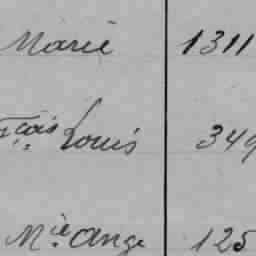 Marie 1311
çois Louis 349
Mie Ange 125